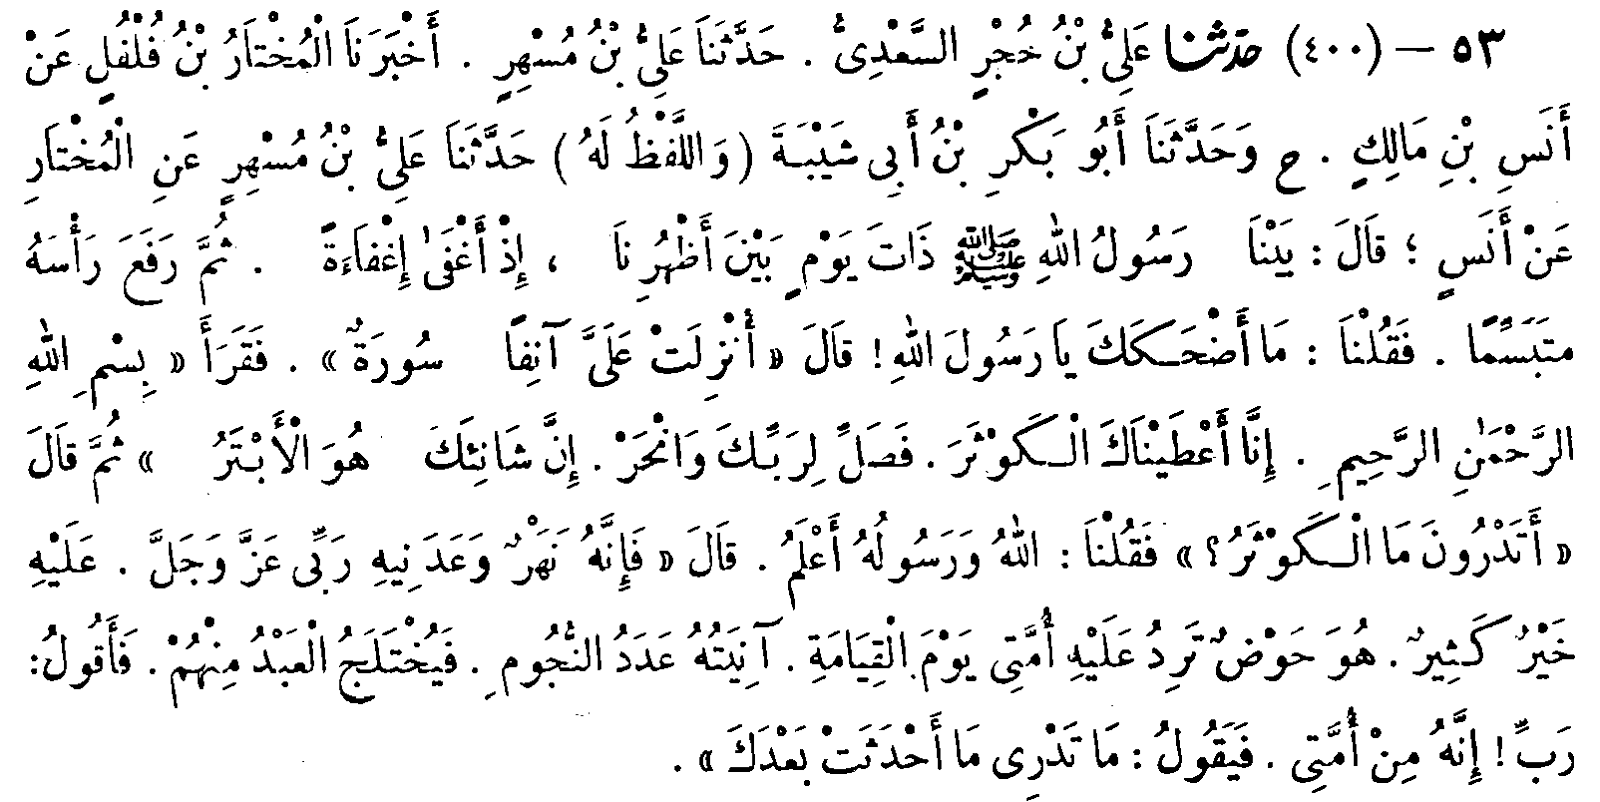 ٥٣ — (٤٠٠) حدّثنا عَلِىُّ بْنُ حُجْرٍ السَّعْدِىُّ . حَدَّثَنَا عَلِىُّ بْنُ مُسْهِرٍ . أَخْبَرَنَا الْمُخْتَارُ بْنُ فُلْفُلٍ عَنْ
أَنَسِ بْنِ مَالِكٍ . ح وَحَدَّثَنَا أَبُو بَكْرِ بْنُ أَبِى شَيْبَةَ (وَاللَّفْظُ لَهُ) حَدَّثَنَا عَلِىُّ بْنُ مُسْهِرٍ عَنِ الْمُخْتَارِ
عَنْ أَنَسٍ ؛ قَالَ : بَيْنَا رَسُولُ اللهِ ﷺ ذَاتَ يَوْمٍ بَيْنَ أَظْهُرِنَا ، إِذْ أَغْفَىٰ إِغْفَاءَةً . ثُمَّ رَفَعَ رَأْسَهُ
مُتَبَسِّمًا . فَقُلْنَا : مَا أَضْحَكَكَ يَا رَسُولَ اللهِ ! قَالَ « أُنْزِلَتْ عَلَىَّ آنِفًا سُورَةٌ » . فَقَرَأَ « بِسْمِ اللهِ
الرَّحْمٰنِ الرَّحِيمِ . إِنَّا أَعْطَيْنَاكَ الْكَوْثَرَ . فَصَلِّ لِرَبِّكَ وَانْحَرْ . إِنَّ شَانِئَكَ هُوَ الْأَبْتَرُ » ثُمَّ قَالَ
« أَتَدْرُونَ مَا الْكَوْثَرُ ؟ » فَقُلْنَا : اللهُ وَرَسُولُهُ أَعْلَمُ . قَالَ « فَإِنَّهُ نَهْرٌ وَعَدَنِيهِ رَبِّى عَزَّ وَجَلَّ . عَلَيْهِ
خَيْرٌ كَثِيرٌ . هُوَ حَوْضٌ تَرِدُ عَلَيْهِ أُمَّتِى يَوْمَ الْقِيَامَةِ . آنِيَتُهُ عَدَدُ النُّجُومِ . فَيُخْتَلَجُ الْعَبْدُ مِنْهُمْ . فَأَقُولُ :
رَبِّ ! إِنَّهُ مِنْ أُمَّتِى . فَيَقُولُ : مَا تَدْرِى مَا أَحْدَثَتْ بَعْدَكَ » .